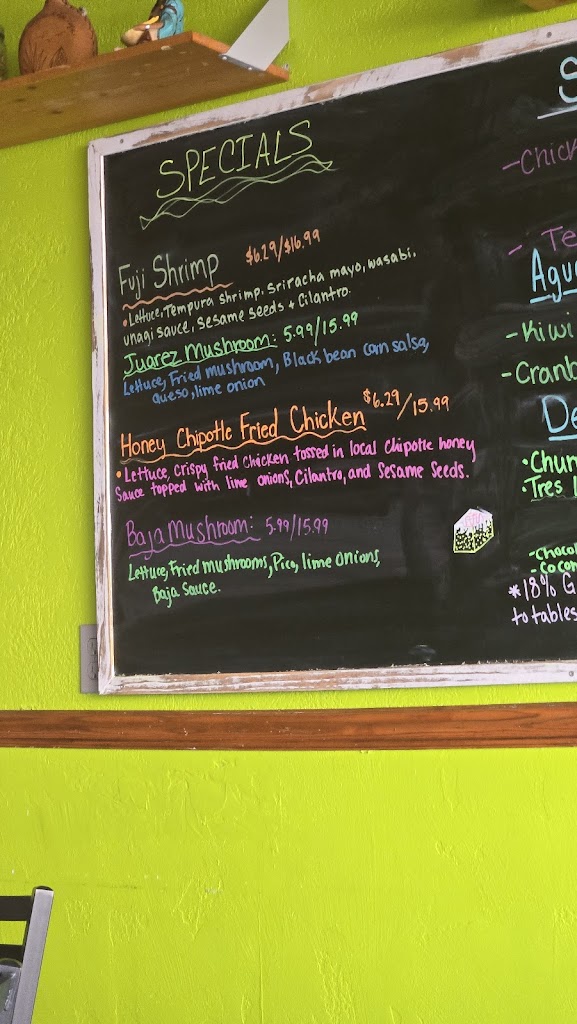 SPECIALS
Fuji Shrimp $6.29/$16.99
• Lettuce, Tempura shrimp, Sriracha mayo, wasabi,
unagi sauce, sesame seeds + Cilantro.
Juarez Mushroom: 5.99/15.99
Lettuce, Fried mushroom, Black bean corn salsa,
queso, lime onion
Honey Chipotle Fried Chicken $6.29/15.99
• Lettuce, crispy fried chicken tossed in local chipotle honey
Sauce topped with lime onions, Cilantro, and Sesame Seeds.
Baja Mushroom: 5.99/15.99
Lettuce, Fried mushrooms, Pico, lime onions,
Baja Sauce.
S
- Chick
- Te
Agu
- Kiwi
- Cranb
De
• Chur
• Tres l
- Chocol
- Cocon
*18% G
to tables